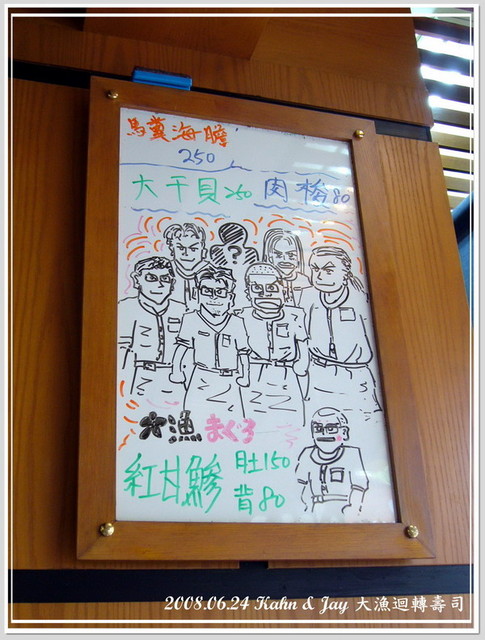 馬糞海膽
250
大干貝250 肉梭80
?
大漁まぐろ
紅甘鰺 肚150
背80
2008.06.24 Kahn & Jay 大漁迴轉壽司